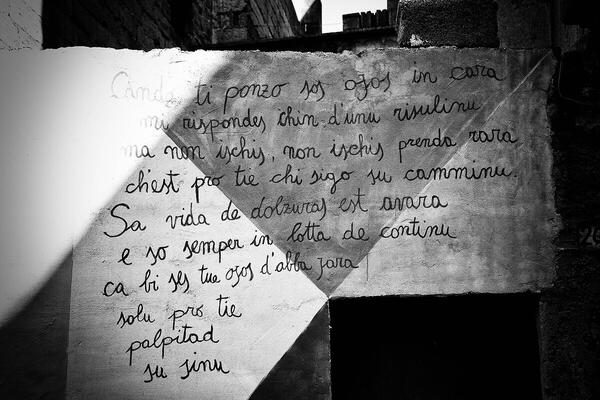 Cando ti ponzo sos ojos in cara
mi rispondes chin d'unu risulinu
ma non ischis, non ischis prenda rara
ch'est pro tie chi sigo su camminu.
Sa vida de dolzuras est avara
e so semper in lotta de continu
ca bi ses tue ojos d'abba jara
solu pro tie
palpitad
su sinu